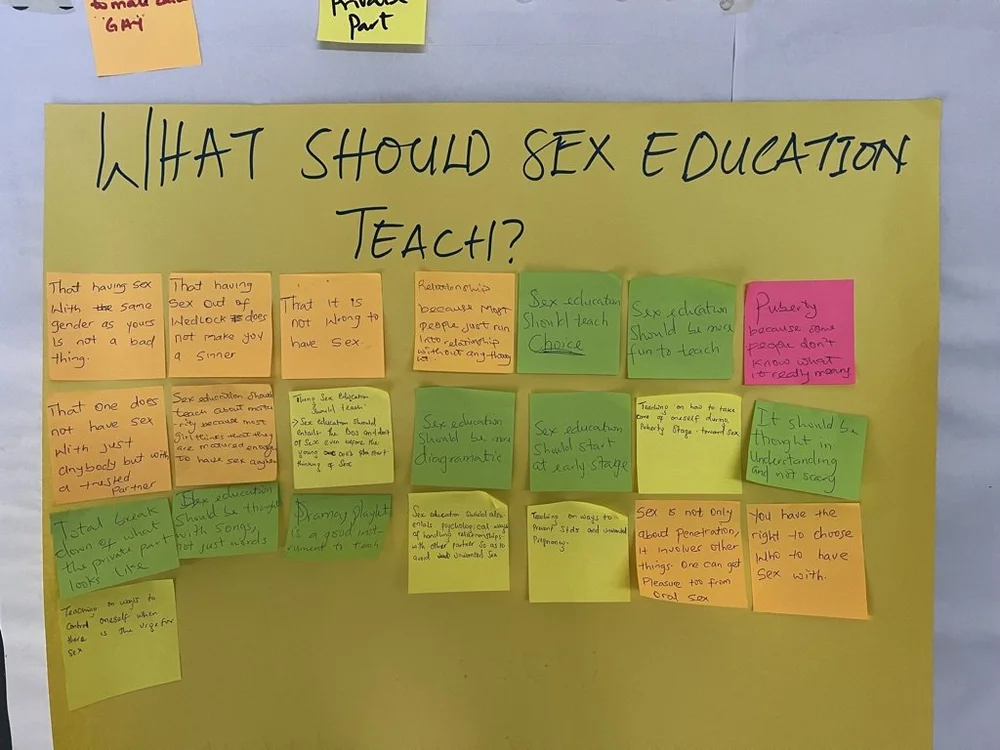 to make
GAY
Private
Part
WHAT SHOULD SEX EDUCATION
TEACH?
That having sex
With same
gender as yours
is not a bad
thing.
That having
Sex out of
Wedlock does
not make you
a Sinner
That it is
not wrong to
have Sex.
Relationship
because most
people just run
Into relationship
without any thing
Sex education
Should teach
Choice
Sex education
Should be more
fun to teach
Puberty
because some
people don't
know what
it really means
That one does
not have sex
With just
anybody but with
a trusted
Partner
Sex education should
teach about
because most
girl thinks that they
are matured enough
to have sex
Sex Education
Should teach
→ Sex Education Should
entails the Dos and don't
of Sex even before the
young ones start
thinking of Sex
Sex education
Should be more
diagramatic
Sex education
should start
at early stage
Teaching on how to take
care of oneself during
Puberty Stage toward sex
It should be
thought in
Understanding
and not scary
Total break
down of what
the private part
looks like
Sex education
Should be thought
with Songs,
not just words
Drama, playlet
is a good inst-
rument to teach
Sex education should also
entails psychological ways
of handling relationships
with other partner So as to
avoid Unwanted Sex
Teaching on ways to
Prevent Stds and Unwanted
Pregnancy.
Sex is not only
about Penetration,
it involves other
things. One can get
Pleasure too from
Oral sex
You have the
right to choose
Who to have
Sex with.
Teaching on ways to
Control oneself when
there is the urge for
sex